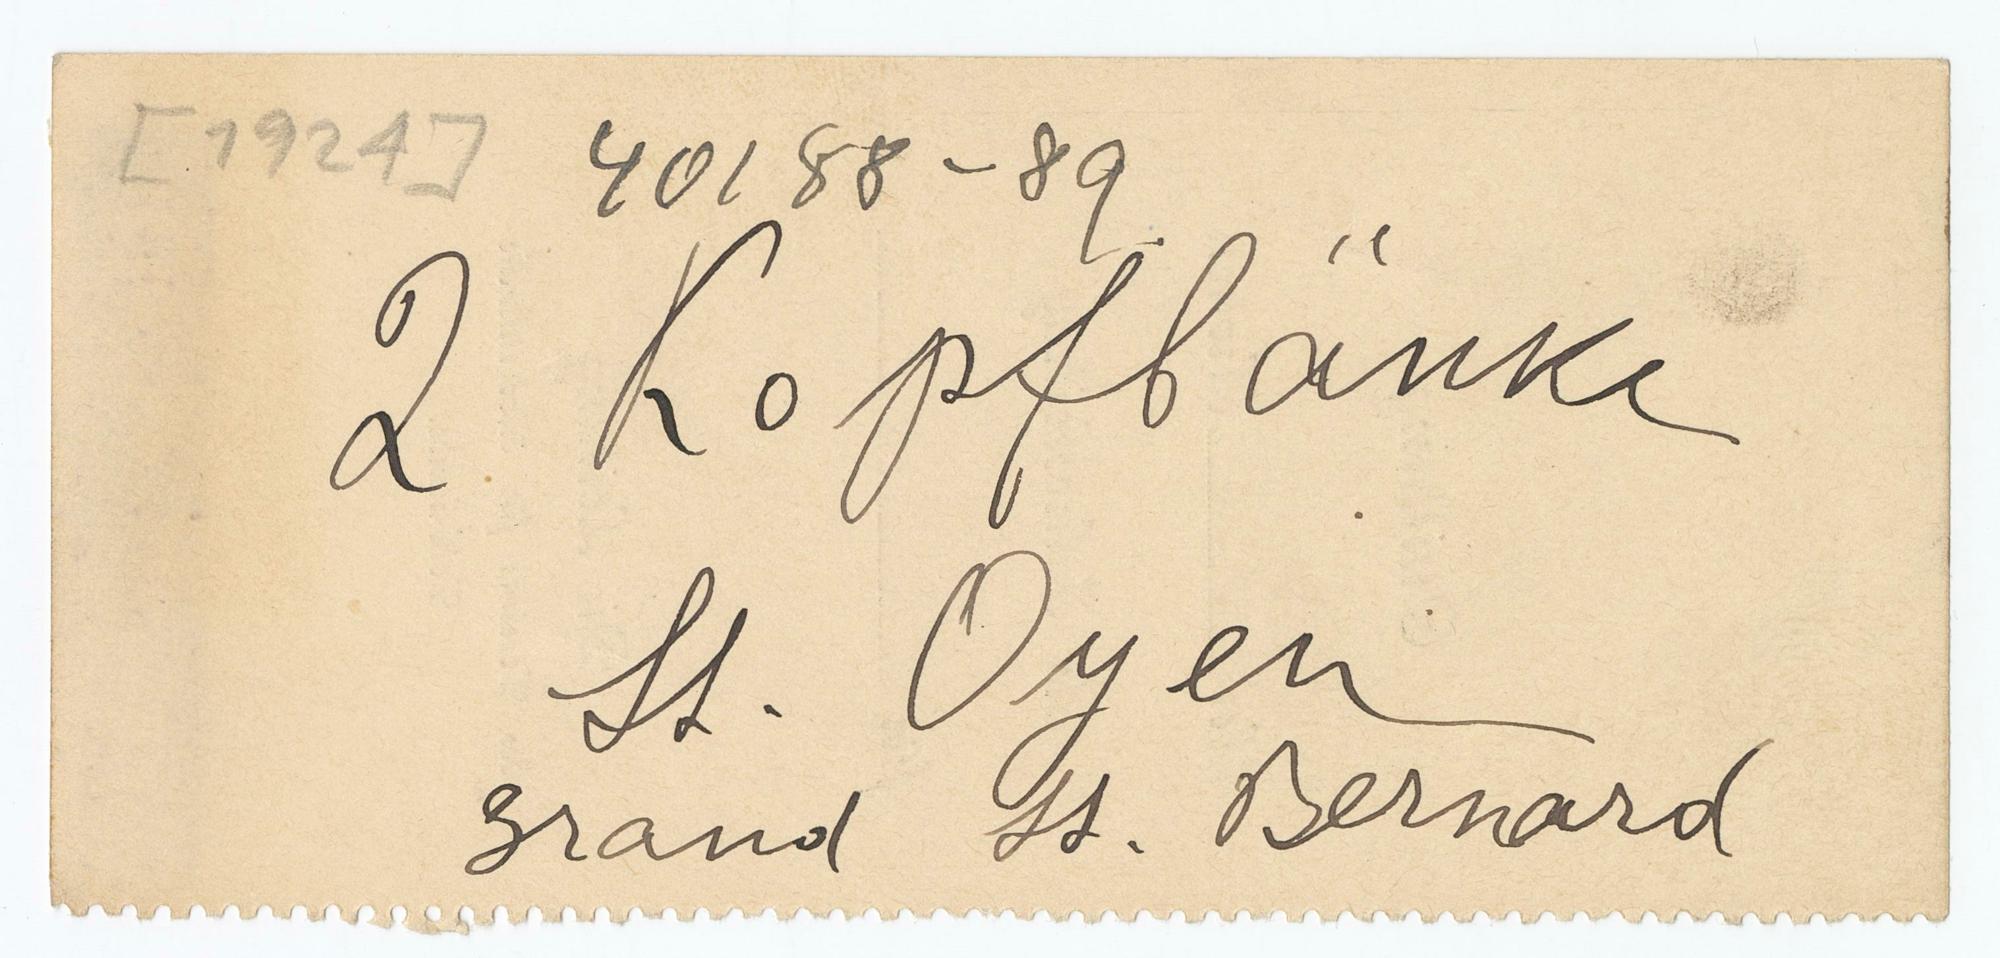 [1924] 40188-89
2 Kopfbänke
St. Oyen
Grand St. Bernard